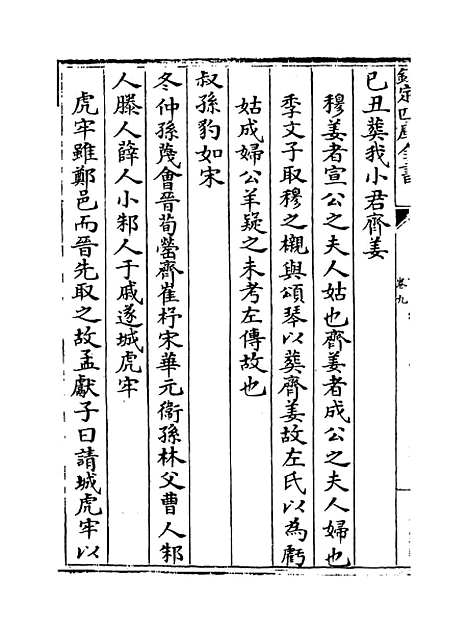 欽定四庫全書
卷九
已丑葬我小君齊姜
穆姜者宣公之夫人姑也齊姜者成公之夫人婦也
季文子取穆之櫬與頌琴以葬齊姜故左氏以為虧
姑成婦公羊疑之未考左傳故也
叔孫豹如宋
冬仲孫蔑會晉荀罃齊崔杼宋華元衞孫林父曹人邾
人滕人薛人小邾人于戚遂城虎牢
虎牢雖鄭邑而晉先取之故孟獻子曰請城虎牢以